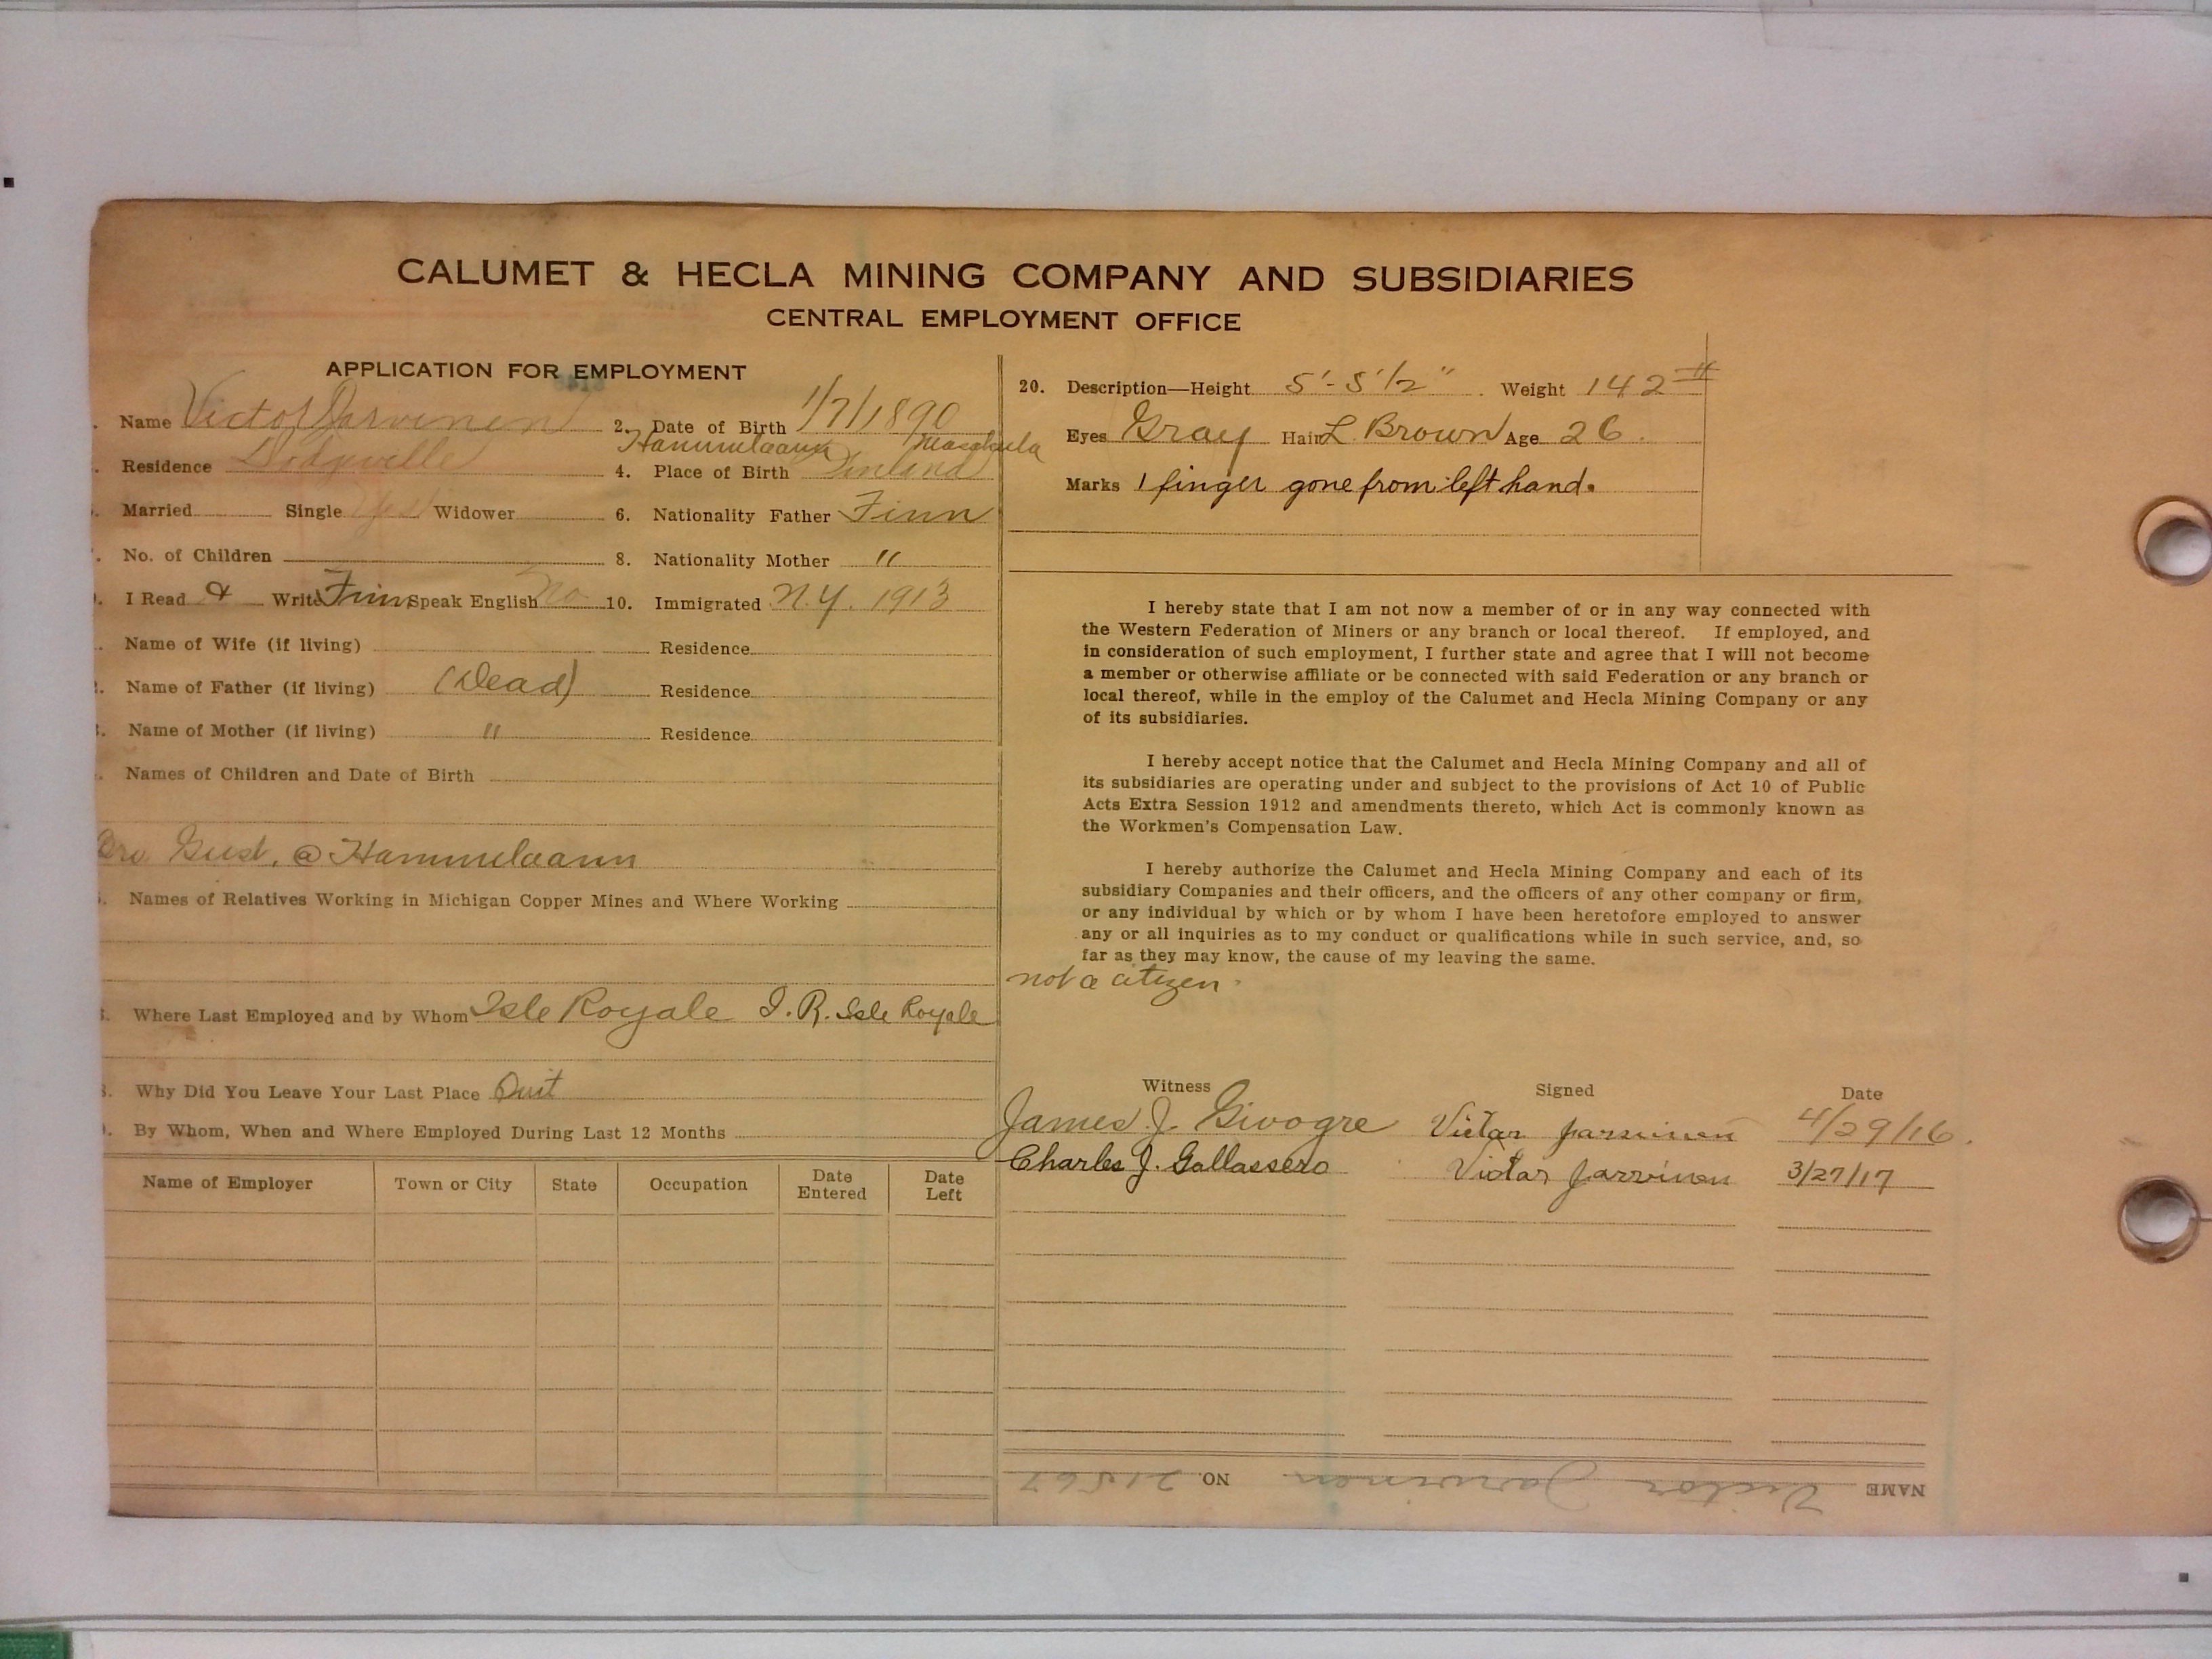 CALUMET & HECLA MINING COMPANY AND SUBSIDIARIES
CENTRAL EMPLOYMENT OFFICE
APPLICATION FOR EMPLOYMENT
Name Victor Jarvinen 2. Date of Birth 1/7/1890
Hammulaann
Residence Dodgeville 4. Place of Birth Finland
Married Single Yes Widower 6. Nationality Father Finn
No. of Children 8. Nationality Mother "
I Read & Write Finn Speak English No 10. Immigrated N.Y. 1913
Name of Wife (if living) Residence
Name of Father (if living) (Dead) Residence
Name of Mother (if living) " Residence
Names of Children and Date of Birth
Bro Gust, @ Hammulaann
Names of Relatives Working in Michigan Copper Mines and Where Working
Where Last Employed and by Whom Isle Royale I.R. Isle Royale
Why Did You Leave Your Last Place Quit
By Whom, When and Where Employed During Last 12 Months
Name of Employer Town or City State Occupation Date Entered Date Left
20. Description—Height 5'-5 1/2" Weight 142 #
Eyes Gray Hair L. Brown Age 26
Marks 1 finger gone from left hand.
I hereby state that I am not now a member of or in any way connected with
the Western Federation of Miners or any branch or local thereof. If employed, and
in consideration of such employment, I further state and agree that I will not become
a member or otherwise affiliate or be connected with said Federation or any branch or
local thereof, while in the employ of the Calumet and Hecla Mining Company or any
of its subsidiaries.
I hereby accept notice that the Calumet and Hecla Mining Company and all of
its subsidiaries are operating under and subject to the provisions of Act 10 of Public
Acts Extra Session 1912 and amendments thereto, which Act is commonly known as
the Workmen's Compensation Law.
I hereby authorize the Calumet and Hecla Mining Company and each of its
subsidiary Companies and their officers, and the officers of any other company or firm,
or any individual by which or by whom I have been heretofore employed to answer
any or all inquiries as to my conduct or qualifications while in such service, and, so
far as they may know, the cause of my leaving the same.
not a citizen.
Witness Signed Date
James J. Givogre Victar Jarvinen 4/29/16.
Charles J. Gallassero Victar Jarvinen 3/27/17
NAME Victor Jarvinen NO. 21567